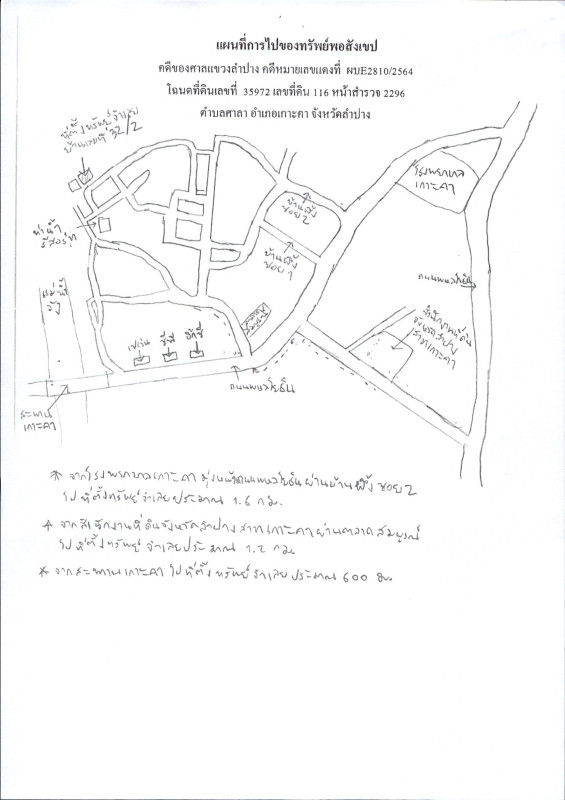 แผนที่การไปของทรัพย์พอสังเขป
คดีของศาลแขวงลำปาง คดีหมายเลขแดงที่ ผบE2810/2564
โฉนดที่ดินเลขที่ 35972 เลขที่ดิน 116 หน้าสำรวจ 2296
ตำบลศาลา อำเภอเกาะคา จังหวัดลำปาง
ที่ตั้งทรัพย์จำเลย
บ้านเลขที่ 32/2
โรงพยาบาล
เกาะคา
บ้านผึ้ง
ซอย 2
ท่าน้ำ
รีสอร์ท
บ้านผึ้ง
ซอย 1
ถนนพหลโยธิน
แม่น้ำ
วัง
สำนักงานที่ดิน
จังหวัดลำปาง
สาขาเกาะคา
ตลาด
สมบูรณ์
เซเว่น
ซีพี
ถนนพหลโยธิน
สะพาน
เกาะคา
* จากโรงพยาบาลเกาะคา มุ่งหน้าถนนพหลโยธินผ่านบ้านผึ้ง ซอย 2
ไปที่ตั้งทรัพย์จำเลยประมาณ 1.6 กม.
* จากสำนักงานที่ดินจังหวัดลำปาง สาขาเกาะคา ผ่านตลาดสมบูรณ์
ไปที่ตั้งทรัพย์จำเลยประมาณ 1.2 กม.
* จากสะพานเกาะคา ไปที่ตั้งทรัพย์จำเลยประมาณ 600 ม.